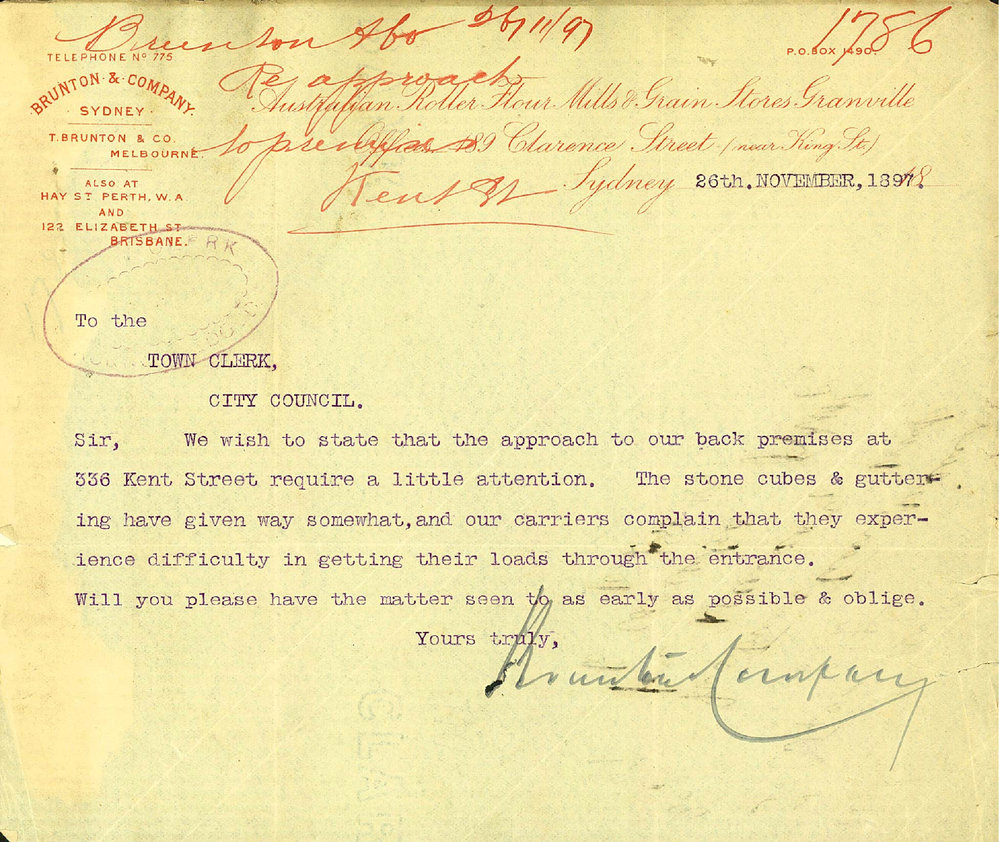 Brunton & Co 26/11/97
1786
TELEPHONE Nº 775
P.O. BOX 1490.
BRUNTON & COMPANY
SYDNEY
T. BRUNTON & CO.
MELBOURNE.
ALSO AT
HAY ST PERTH, W.A
AND
122 ELIZABETH ST
BRISBANE.
Re approach
to premises
Kent St
Australian Roller Flour Mills & Grain Stores Granville
Offices 189 Clarence Street (near King St.)
Sydney 26th. NOVEMBER, 1897.
CLERK
To the
TOWN CLERK,
CITY COUNCIL.
Sir, We wish to state that the approach to our back premises at
336 Kent Street require a little attention. The stone cubes & gutter-
ing have given way somewhat, and our carriers complain that they exper-
ience difficulty in getting their loads through the entrance.
Will you please have the matter seen to as early as possible & oblige.
Yours truly,
Brunton & Company